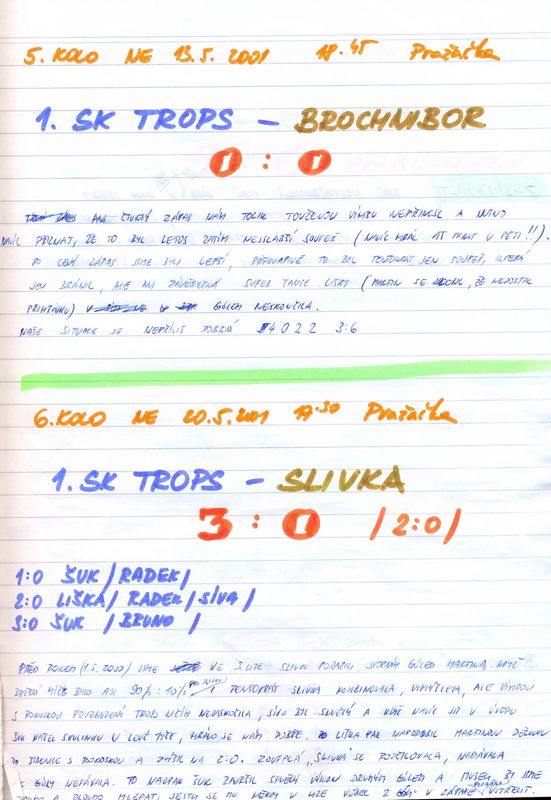 5. KOLO NE 13.5. 2001 18.45 Pražačka
1. SK TROPS – BROCHNIBOR
0 : 0
ANI ČTVRTÝ ZÁPAS NÁM TOLIK TOUŽENOU VÝHRU NEPŘINESL A NUTNO
NAVÍC PŘIZNAT, ŽE TO BYL LETOS ZATÍM NEJSLABŠÍ SOUPEŘ (NAVÍC HRÁL 15 MINUT V PĚTI!!).
PO CELÝ ZÁPAS JSME BYLI LEPŠÍ, PŘEKVAPIVĚ TO BYL TENTOKRÁT JEN SOUPEŘ, KTERÝ
JEN BRÁNIL, ALE ANI ZÁVĚREČNÁ SUPER ŠANCE LIŠKY (MARTIN SE ZLOBIL, ŽE NEDOSTAL
PŘIHRÁVKU) GÓLEM NESKONČILA.
NAŠE SITUACE JE NEPŘÍLIŠ DOBRÁ 4 0 2 2 3:6
6. KOLO NE 20.5. 2001 17.30 Pražačka
1. SK TROPS – SLIVKA
3 : 0 /2:0/
1:0 ŠUK /RADEK/
2:0 LIŠKA / RADEK /SÍVA/
3:0 ŠUK / BRUNO /
PŘED ROKEM (1.5. 2000) JSME VE 3. LIZE SLIVKU PORAZILI SPORNÝM GÓLEM MARTINA, KDYŽ
DRŽENÍ MÍČE BYLO ASI 90% : 10% TENTOKRÁT SLIVKA KOMBINOVALA, VYMÝŠLELA, ALE VÝHROU
S POKOSKOU POVZBUZENÍ TROPS NIČÍM NEZASKOČILA, SÍVA BYL SKVĚLÝ A KDYŽ NAVÍC JIŽ V ÚVODU
ŠUK NAŠEL SKULINKU V LEVÉ TYČE, HRÁLO SE NÁM DOBŘE. LIŠKA PAK NAPODOBIL MARTINOVU DĚLOVKU
S POKOSKOU A ZVÝŠIL NA 2:0. ZOUFALÁ "SLIVKA" SE ROZČILOVALA, NADÁVALA
GÓLY NEDÁVALA. TO NAOPAK ŠUK ZAVRŠIL SKVĚLÝ VÝKON DRUHÝM GÓLEM A MUSELI JSME
A DLOUHO HLEDAT, JESTLI SE NÁM NĚKDY V LIZE VŮBEC V ZÁPASE ZVÍTĚZIT.